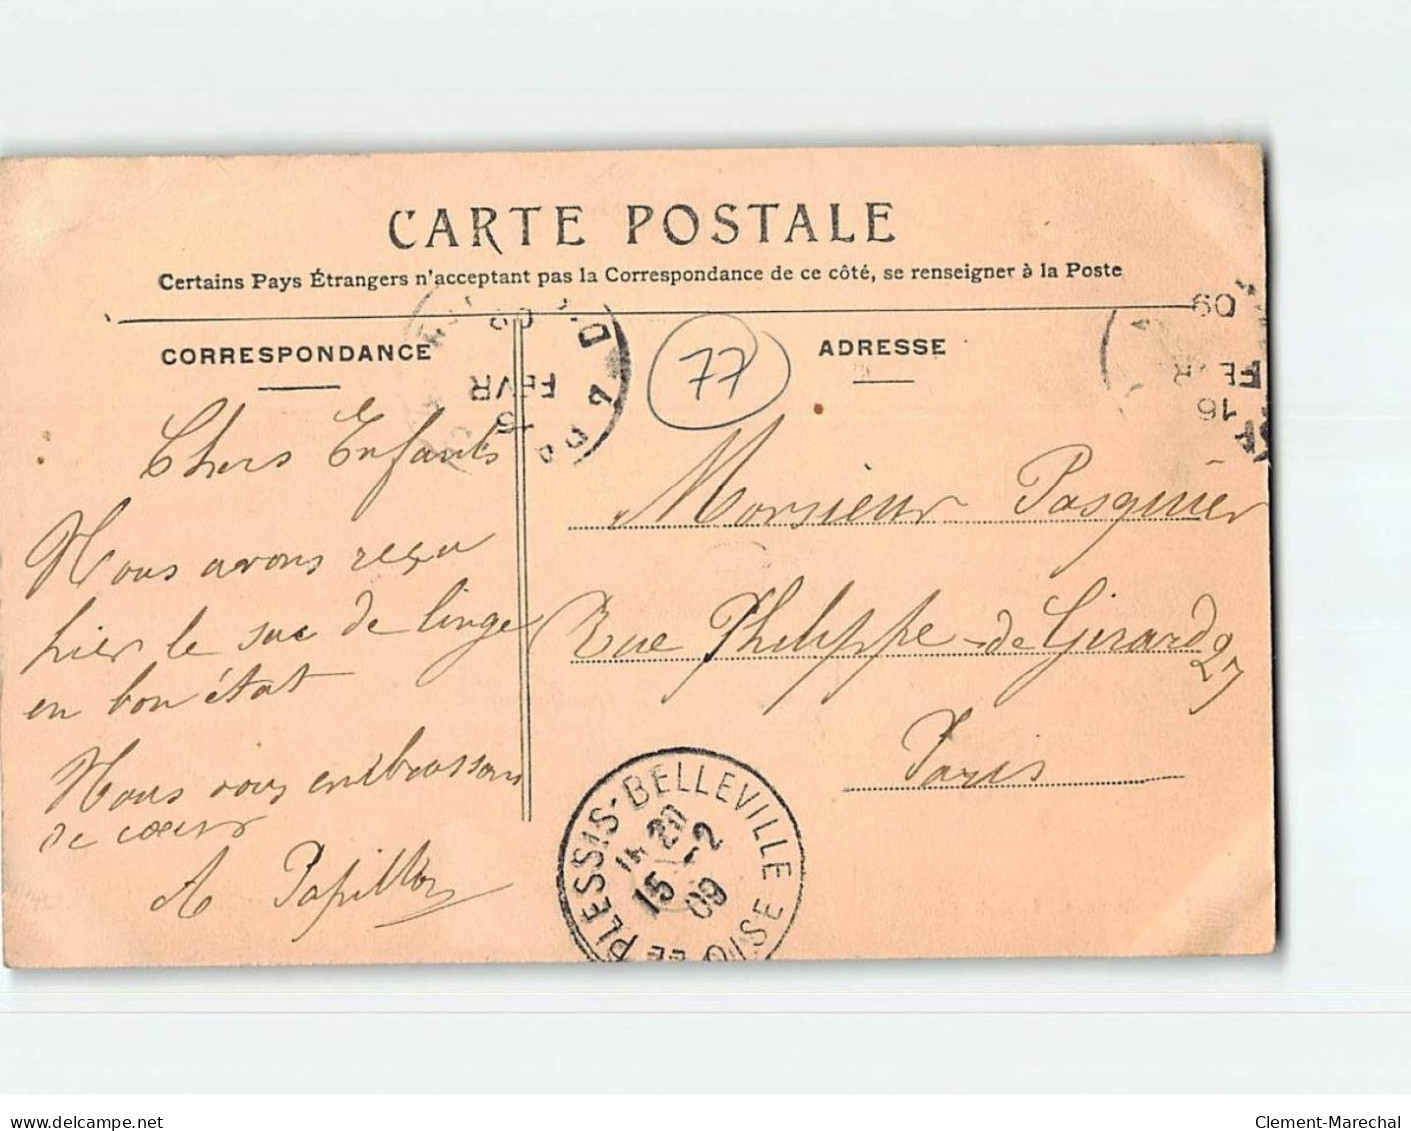 CARTE POSTALE
Certains Pays Étrangers n'acceptent pas la Correspondance de ce côté, se renseigner à la Poste
CORRESPONDANCE
Chers Enfants
Nous avons reçu
hier le sac de linge
en bon état
Nous vous embrassons
de coeur
A Papillon
77
ADRESSE
Monsieur Pasquier
Rue Philippe-de Girard
27
Paris
16
FEVR
09
16
FEVR
09
LE PLESSIS-BELLEVILLE
15 -2
09
OISE
www.delcampe.net
Clement-Marechal